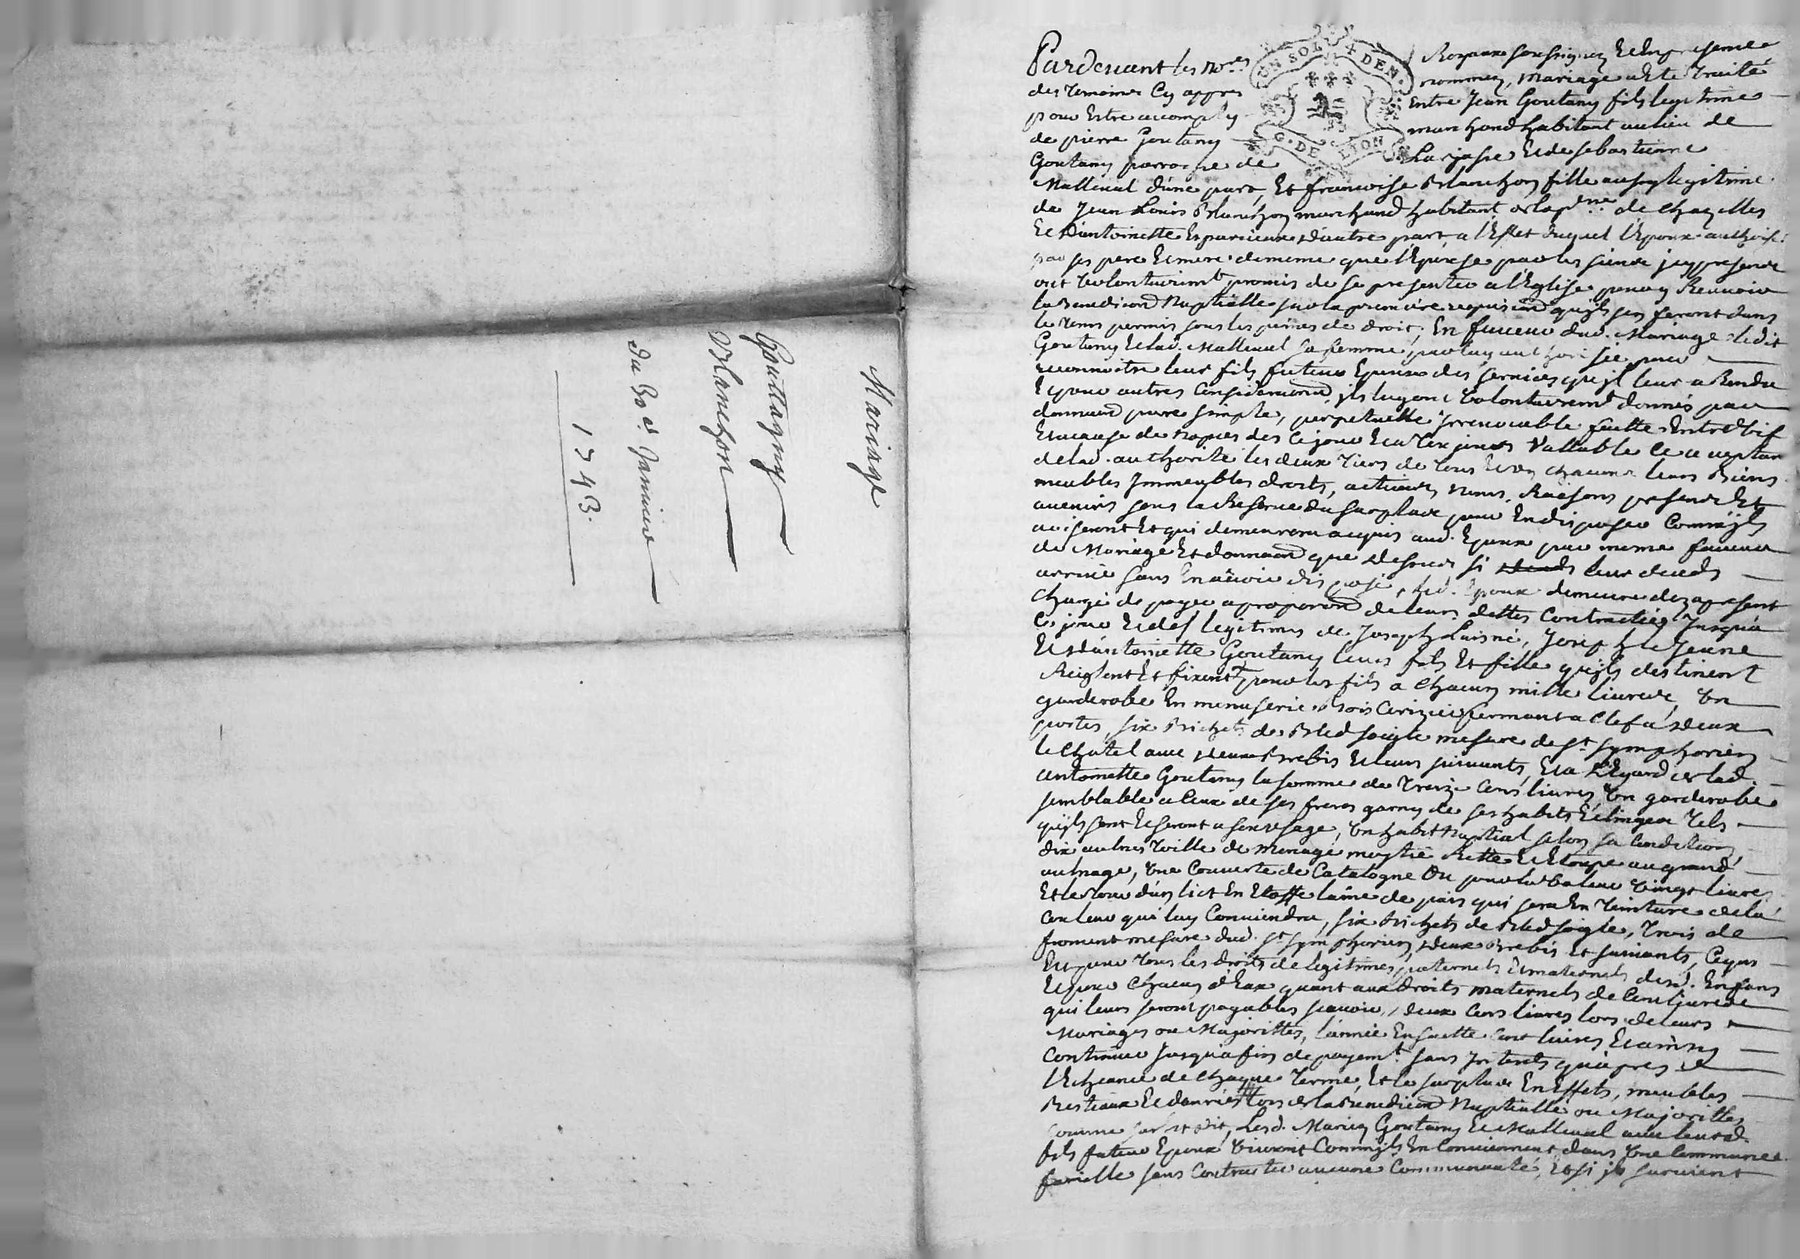 Mariage
Goutagny
Blanchon
du 30e Janvier
1743.
Pardevant les nores Royaux soussignez et en presence
des temoins cy appres nommez, mariage a ete traité
pour estre accomply Entre Jean Goutany fils legitime
de pierre Goutany marchand habitant au lieu de
Goutany parroisse de Larajasse et de sebastienne
Malleval d'une part, Et francoise Blanchon fille aussy legitime
de Jean Louis Blanchon marchand habitant de la pne de chazelles
Et d'antoinette Esparcieux d'autre part, a l'Effet duquel l'Epoux authorisé
par ses pere Et mere de meme que l'Epouse par les siens jcy presents
ont volontairemt promis de se presenter a l'Eglise pour y Recevoir
la Benediction Nuptialle sur la premiere requisition qu'ils s'en feront dans
le tems permis sous les peines de droit; En faveur dud. Mariage ledit
Goutany Et lad. Malleval sa femme, par luy authorisée pour
reconnoitre leur fils futeur Epoux des services qu'il leur a Rendu
Et pour autres Considerations, ils luy ont volontairemt donnés par
donnation pure simple, perpetuelle Jrrevocable faitte Entre vif
Et a cause de Nopces des ce jour Et a toujours Vallable Ce acceptant
de lad. authorité les deux tiers de tous Et un chacuns leurs Biens
meubles Jmmeubles droits, actions, noms, Raisons presents Et
avenirs sous la Reserve du surplus pour En disposer Comm'ils
aviseront Et qui demeurera acquis aud. Epoux par meme faveur
de Mariage Et donnation que dessus si leur deceds
arrivé sans En avoir disposé, led. Epoux demeure dez apresent
Chargé de payer a proportion de leurs dettes Contractées Jusqu'a
Ce jour Et des legitimes de Joseph Laisné, Josepf le Jeune
Et d'antoinette Goutany leurs fils Et fille qu'ils destinent
Reiglent Et fixent pour les fils a chacun mille livres, Un
garderobe En menuserie bois Cerizier fermant a Clef a deux
portes six Bichets de Bled soigle mesure de St. Symphorien
le Chatel avec deux Brebis Et leurs suivants, Et a l'Egard de lad.
antoinette Goutany la somme de treize Cens livres, Un garderobe
semblable a Ceux de ses freres garny de ses habits Et linges tels
qu'ils sont Et seront a son usage, Un habit Nuptial selon sa Condition,
dix aulnes toille de menage moytié Ritte Et Etoupe au grand
aulnage, Une Couverte de Catalogne Ou pour la valeur Vingt livres
Et le tour d'un lict En Etoffe laine de pais qui sera En teinture de la
Couleur qui luy Conviendra, six bichets de Bled soigle, trois de
froment mesure dud. St Symphorien, deux Brebis Et suivants, Ce qui
Est pour tous les droits de legitimes paternels Et maternels desd. Enfans
Et pour Chacun d'Eux quant aux droits maternels de Cent livres
qui leurs seront payables scavoir, deux Cens livres lors de leurs
Mariages ou Majorittes, l'année Ensuitte Cent livres Et ainsy
Continuer Jusqu'a fin de payemt sans Jnterets qu'apres
l'Echeance de chaque terme, Et le surplus En Effets, meubles
Bestiaux Et danrées lors de la Benediction Nuptialle ou Majorittes
comme sus est dit, Lesd. Mariez Goutany Et Malleval avec leurd.
fils futeur Epoux Vivront Comm'ils En Conviennent dans Une Commune
famille sans Contracter aucune Communauté, Et si ils survient